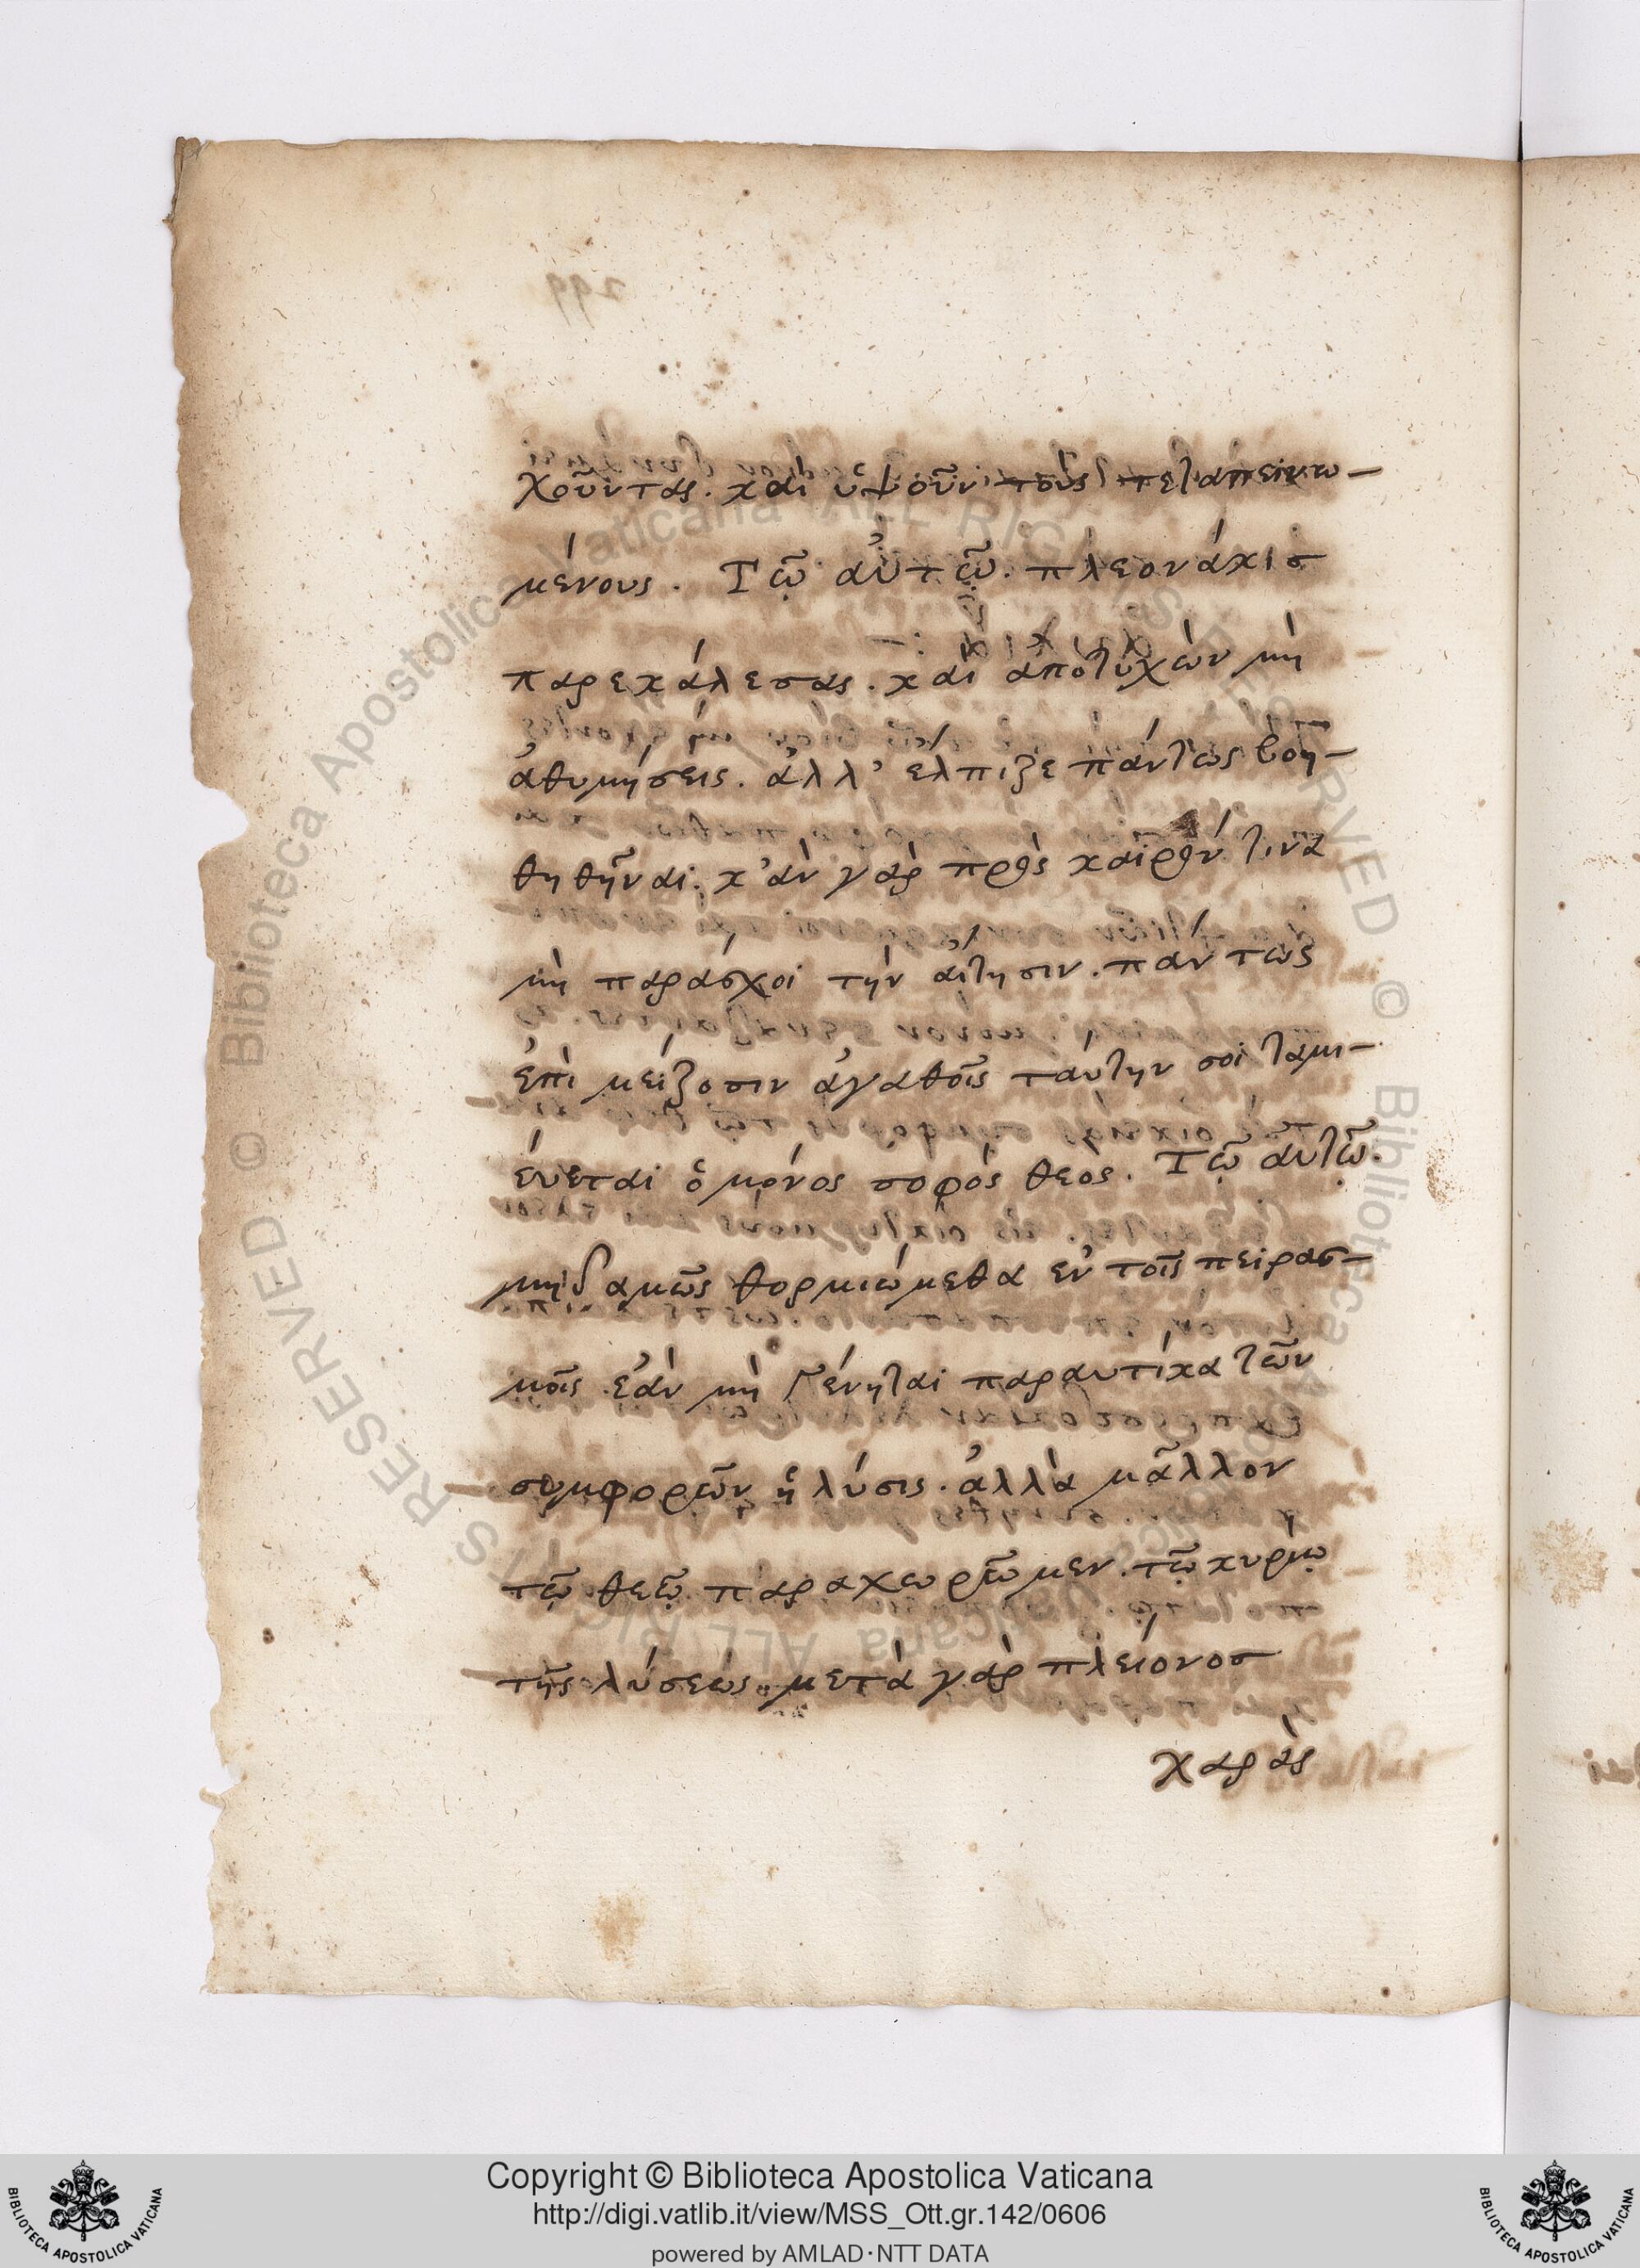 χοῦντας. καὶ ὑψοῦν τοὺς τεταπεινω-
μένους. Τῷ αὐτῷ. πλεονάκισ
παρεκάλεσας. καὶ ἀποτυχὼν μὴ
ἀθυμήσεις. ἀλλ' ἔλπιζε πάντως βοη-
θηθῆναι. κ'ἀν γὰρ πρὸς καιρόν τινα
μὴ παράσχοι τὴν αἴτησιν. πάντως
ἐπὶ μείζοσιν ἀγαθοῖς ταύτην σοι ταμι-
έυεται ὁ μόνος σοφὸς θεός. Τῷ αὐτῷ.
μηδαμῶς θορμιώμεθα ἐν τοῖς πειρασ-
μοῖς ἐὰν μὴ γένηται παραυτίκα τῶν
συμφορῶν ἡ λύσις. ἀλλὰ μᾶλλον
τῷ θεῷ παραχωρῶμεν. τῷ κυρίῳ
τῆς λύσεως. μετὰ γὰρ πλείονοσ
χαρὰς
Copyright © Biblioteca Apostolica Vaticana
http://digi.vatlib.it/view/MSS_Ott.gr.142/0606
powered by AMLAD·NTT DATA
BIBLIOTECA APOSTOLICA VATICANA
BIBLIOTECA APOSTOLICA VATICANA